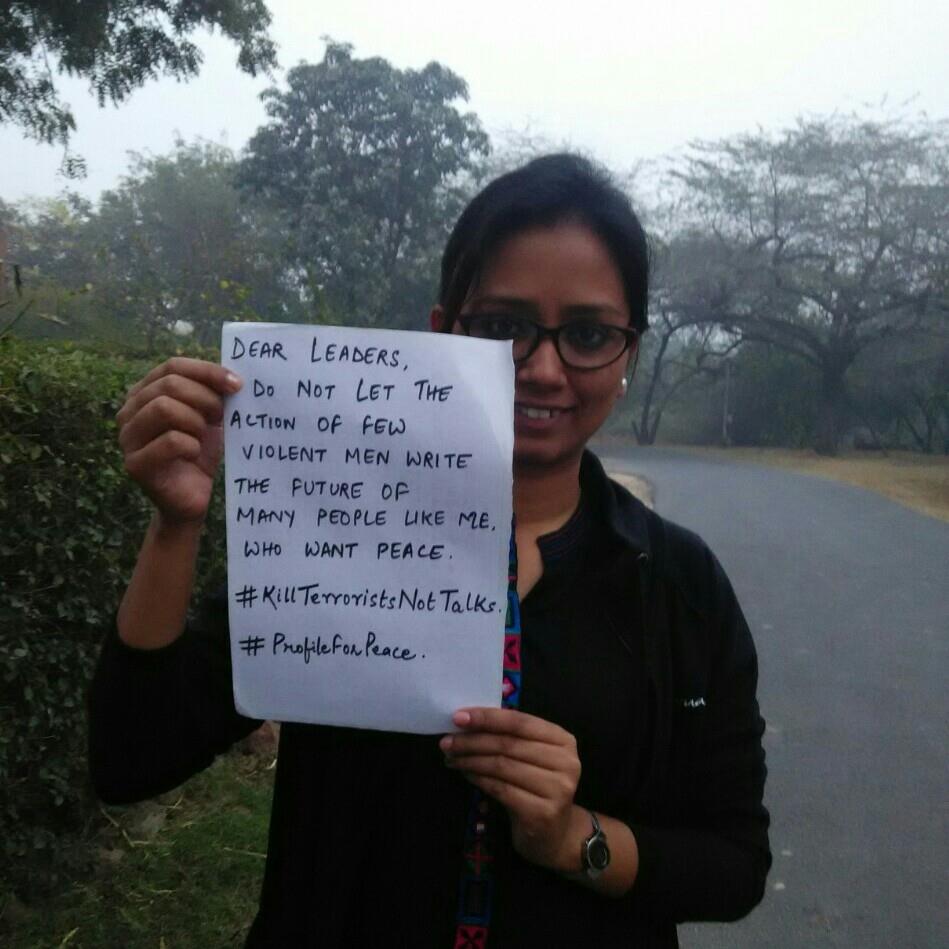 DEAR LEADERS,
DO NOT LET THE
ACTION OF FEW
VIOLENT MEN WRITE
THE FUTURE OF
MANY PEOPLE LIKE ME,
WHO WANT PEACE.
#KillTerroristsNotTalks.
#ProfileForPeace.